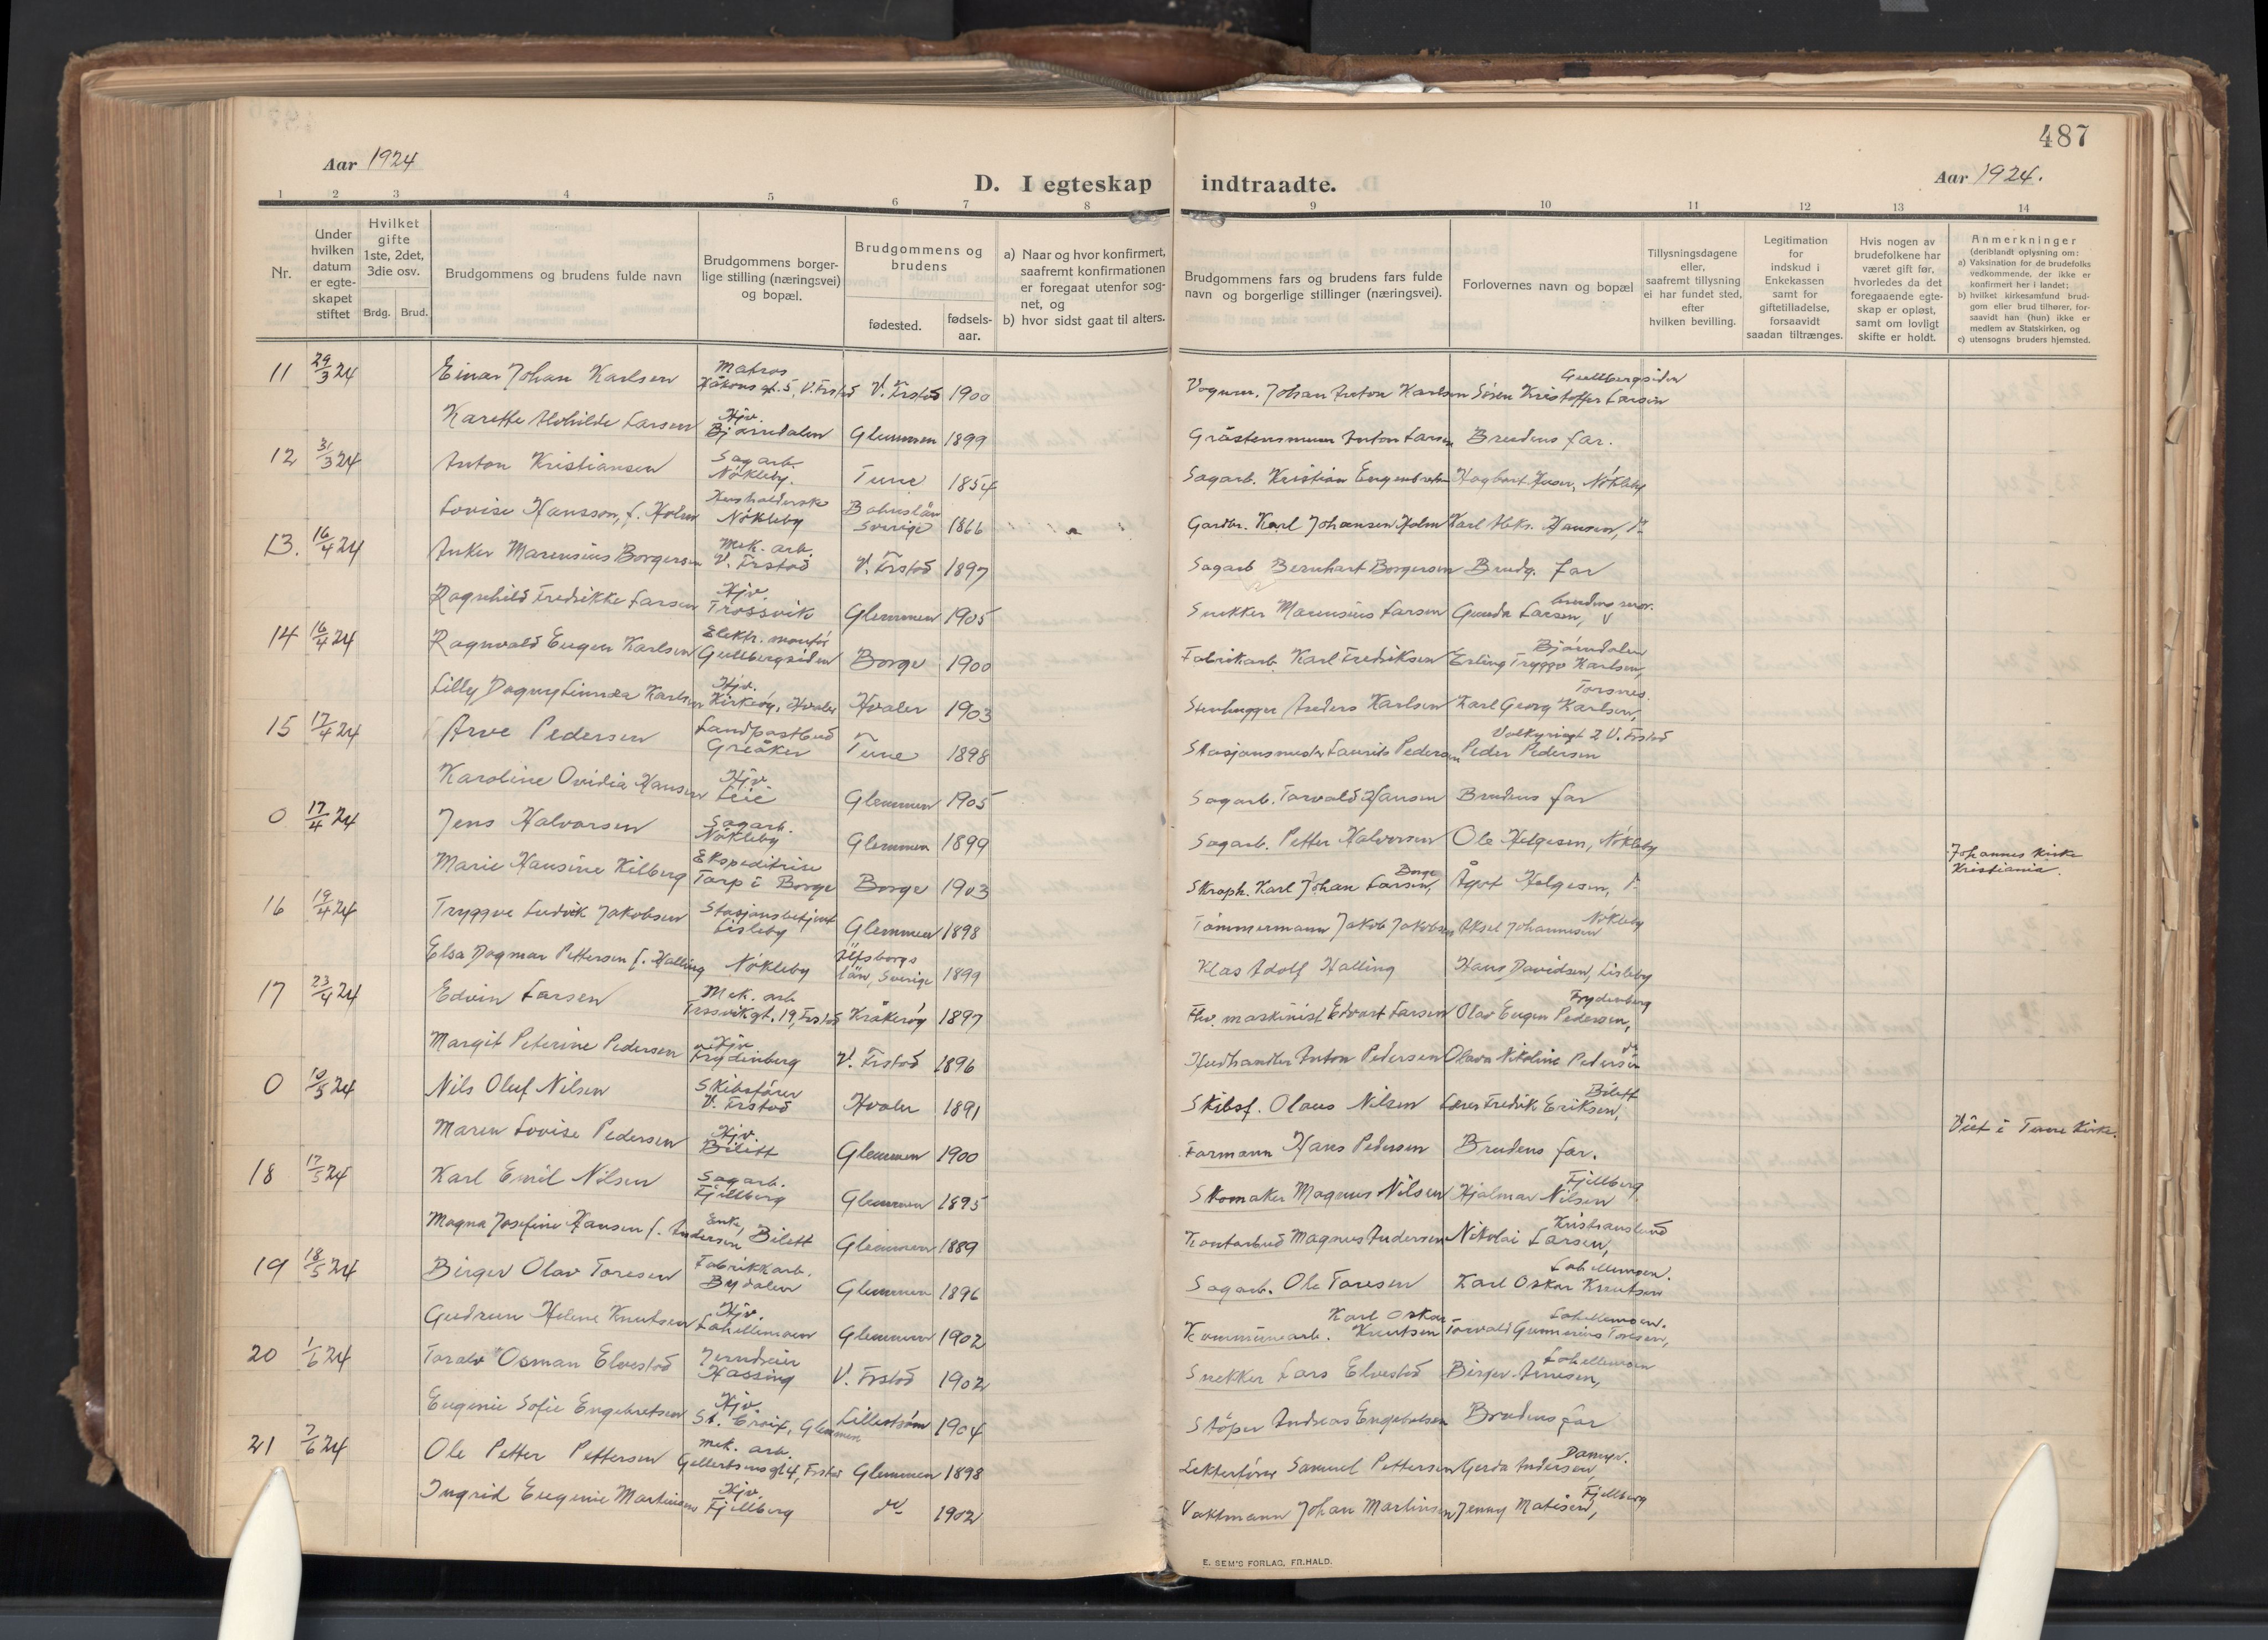 487
Aar 1924
Aar 1924.
D. I egteskap indtraadte.
1 2 3 4 5 6 7 8 9 10 11 12 13 14
Nr.
Under hvilken datum er egteskapet stiftet
Hvilket gifte 1ste, 2det, 3die osv.
Brdg. Brud.
Brudgommens og brudens fulde navn
Brudgommens borgerlige stilling (næringsvei) og bopæl.
Brudgommens og brudens
fødested.
fødselsaar.
a) Naar og hvor konfirmert, saafremt konfirmationen er foregaat utenfor sognet, og
b) hvor sidst gaat til alters.
Brudgommens fars og brudens fars fulde navn og borgerlige stillinger (næringsvei).
Forlovernes navn og bopæl
Tillysningsdagene eller, saafremt tillysning ei har fundet sted, efter hvilken bevilling.
Legitimation for indskud i Enkekassen samt for giftetilladelse, forsaavidt saadan tiltrænges.
Hvis nogen av brudefolkene har været gift før, hvorledes da det foregaaende egteskap er opløst, samt om lovligt skifte er holdt.
Anmerkninger (deriblandt oplysning om:
a) Vaksination for de brudefolks vedkommende, der ikke er konfirmert her i landet;
b) hvilket kirkesamfund brudgom eller brud tilhører, forsaavidt han (hun) ikke er medlem av Statskirken, og
c) utensogns bruders hjemsted.
11 29/3 24 Einar Johan Karlsen Matros Håkonsgt. 5, V. Frstad V. Frstad 1900 Vognm. Johan Anton Karlsen Sören Kristoffer Larsen Gullbergsiden
Larsen Hjv. Bjørndalen Glemmen 1899 Anton Larsen Brudens far.
12 31/3 24 Anton Kristiansen Sagarb. Nökleby. Tune 1854 Sagarb. Kristian Engebretsen Nökleby
Lovise Hansson, f. Holm Husholderske Nökleby Bohuslän Sverige 1866 Gardbr. Karl Johansen Holm Karl Aleks. Hansen,
13. 16/4 24 Anker Marensius Borgersen Mek. arb. V. Frstad V. Frstad 1897 Sagarb Bernhart Borgersen Brudg. far
Ragnhild Fredrikke Larsen Hjv. Trossvik Glemmen 1905 Snekker Marensius Larsen Gunda Larsen, brudens mor.
14 16/4 24 Ragnvald Eugen Karlsen Elektr. montör Gullbergsiden Borge 1900 Fabrikarb. Karl Fredriksen Erling Tryggve Karlsen, Bjørndalen
Lilly Dagny Linnea Karlsen Hjv. Kirkeöy, Hvaler Hvaler 1903 Stenhugger Anders Karlsen Karl Georg Karlsen, Torsnes.
15 17/4 24 Arve Pedersen Landpostbud Greåker Tune 1898 Stasjonsmester Laurits Pedersen Peder Pedersen Valkyriegt 2 V. Frstad
Karoline Ovidia Hansen Hjv. Leie Glemmen 1905 Sagarb. Torvald Hansen Brudens far
0 17/4 24 Jens Halvorsen Sagarb. Nökleby Glemmen 1899 Sagarb. Petter Halvorsen Ole Helgesen, Nökleby
Marie Hansine Kilberg Ekspeditrise Torp i Borge Borge 1903 Karl Johan Larsen, Borge Ågot Helgesen, Johannes Kirke Kristiania.
16 19/4 24 Tryggve Ludvik Jakobsen Stasjonsbetjent Lisleby Glemmen 1898 Tömmermann Jakob Jakobsen Aksel Johannesen Nökleby
Elsa Dagmar Pettersen f. Halling Nökleby Älfsborgs län, Sverige 1899 Klas Adolf Halling Hans Davidsen, Lisleby
17 23/4 24 Edvin Larsen Mek. arb Trosvikgt. 19, Frstad Kråkeröy 1897 maskinist Edvart Larsen Olav Eugen Pedersen, Frydenberg
Margit Peterine Pedersen Hjv Frydenberg V. Frstad 1896 Anton Pedersen Olava Nikoline Pedersen
0 10/5 24 Nils Oluf Nilsen Skibsförer V. Frstad Hvaler 1891 Skibsf. Olaus Nilsen Fredrik Eriksen, Bilitt
Maren Lovise Pedersen Hjv. Bilitt Glemmen 1900 Formann Hans Pedersen Brudens far. Viet i Tune Kirke.
18 17/5 24 Karl Emil Nilsen Sagarb. Fjellberg Glemmen 1895 Skomaker Magnus Nilsen Hjalmar Nilsen Fjellberg
Magna Josefine Hansen f. Andersen Enke, Bilitt Glemmen 1889 Kontorbud Magnus Andersen Nikolai Larsen, Kristianslund
19 18/5 24 Birger Olav Toresen Fabrikkarb. Bydalen Glemmen 1896 Sagarb. Ole Toresen Karl Oskar Knutsen Lahellemoen.
Gudrun Helene Knutsen Hjv. Lahellemoen Glemmen 1902 Kommunearb. Karl Oskar Knutsen Torvald Gunnerius Toresen, Lahellemoen.
20 1/6 24 Toralv Osman Elvestad Jerndreier Hassing V. Frstad 1902 Snekker Lars Elvestad Birger Arnesen, Lahellemoen
Eugenie Sofie Engebretsen Hjv. St. Croix, Glemmen Lilleström 1904 Stöper Andreas Engebretsen Brudens far
21 7/6 24 Ole Petter Pettersen mek. arb. Frstad Glemmen 1898 Lekterförer Samuel Pettersen Gerda Andersen,
Ingrid Eugenie Martinsen Hjv. Fjellberg do 1902 Vaktmann Johan Martinsen Jenny Matisen, Fjellberg
E. SEM'S FORLAG, FR.HALD.